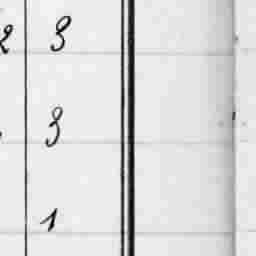 2 3
3
1